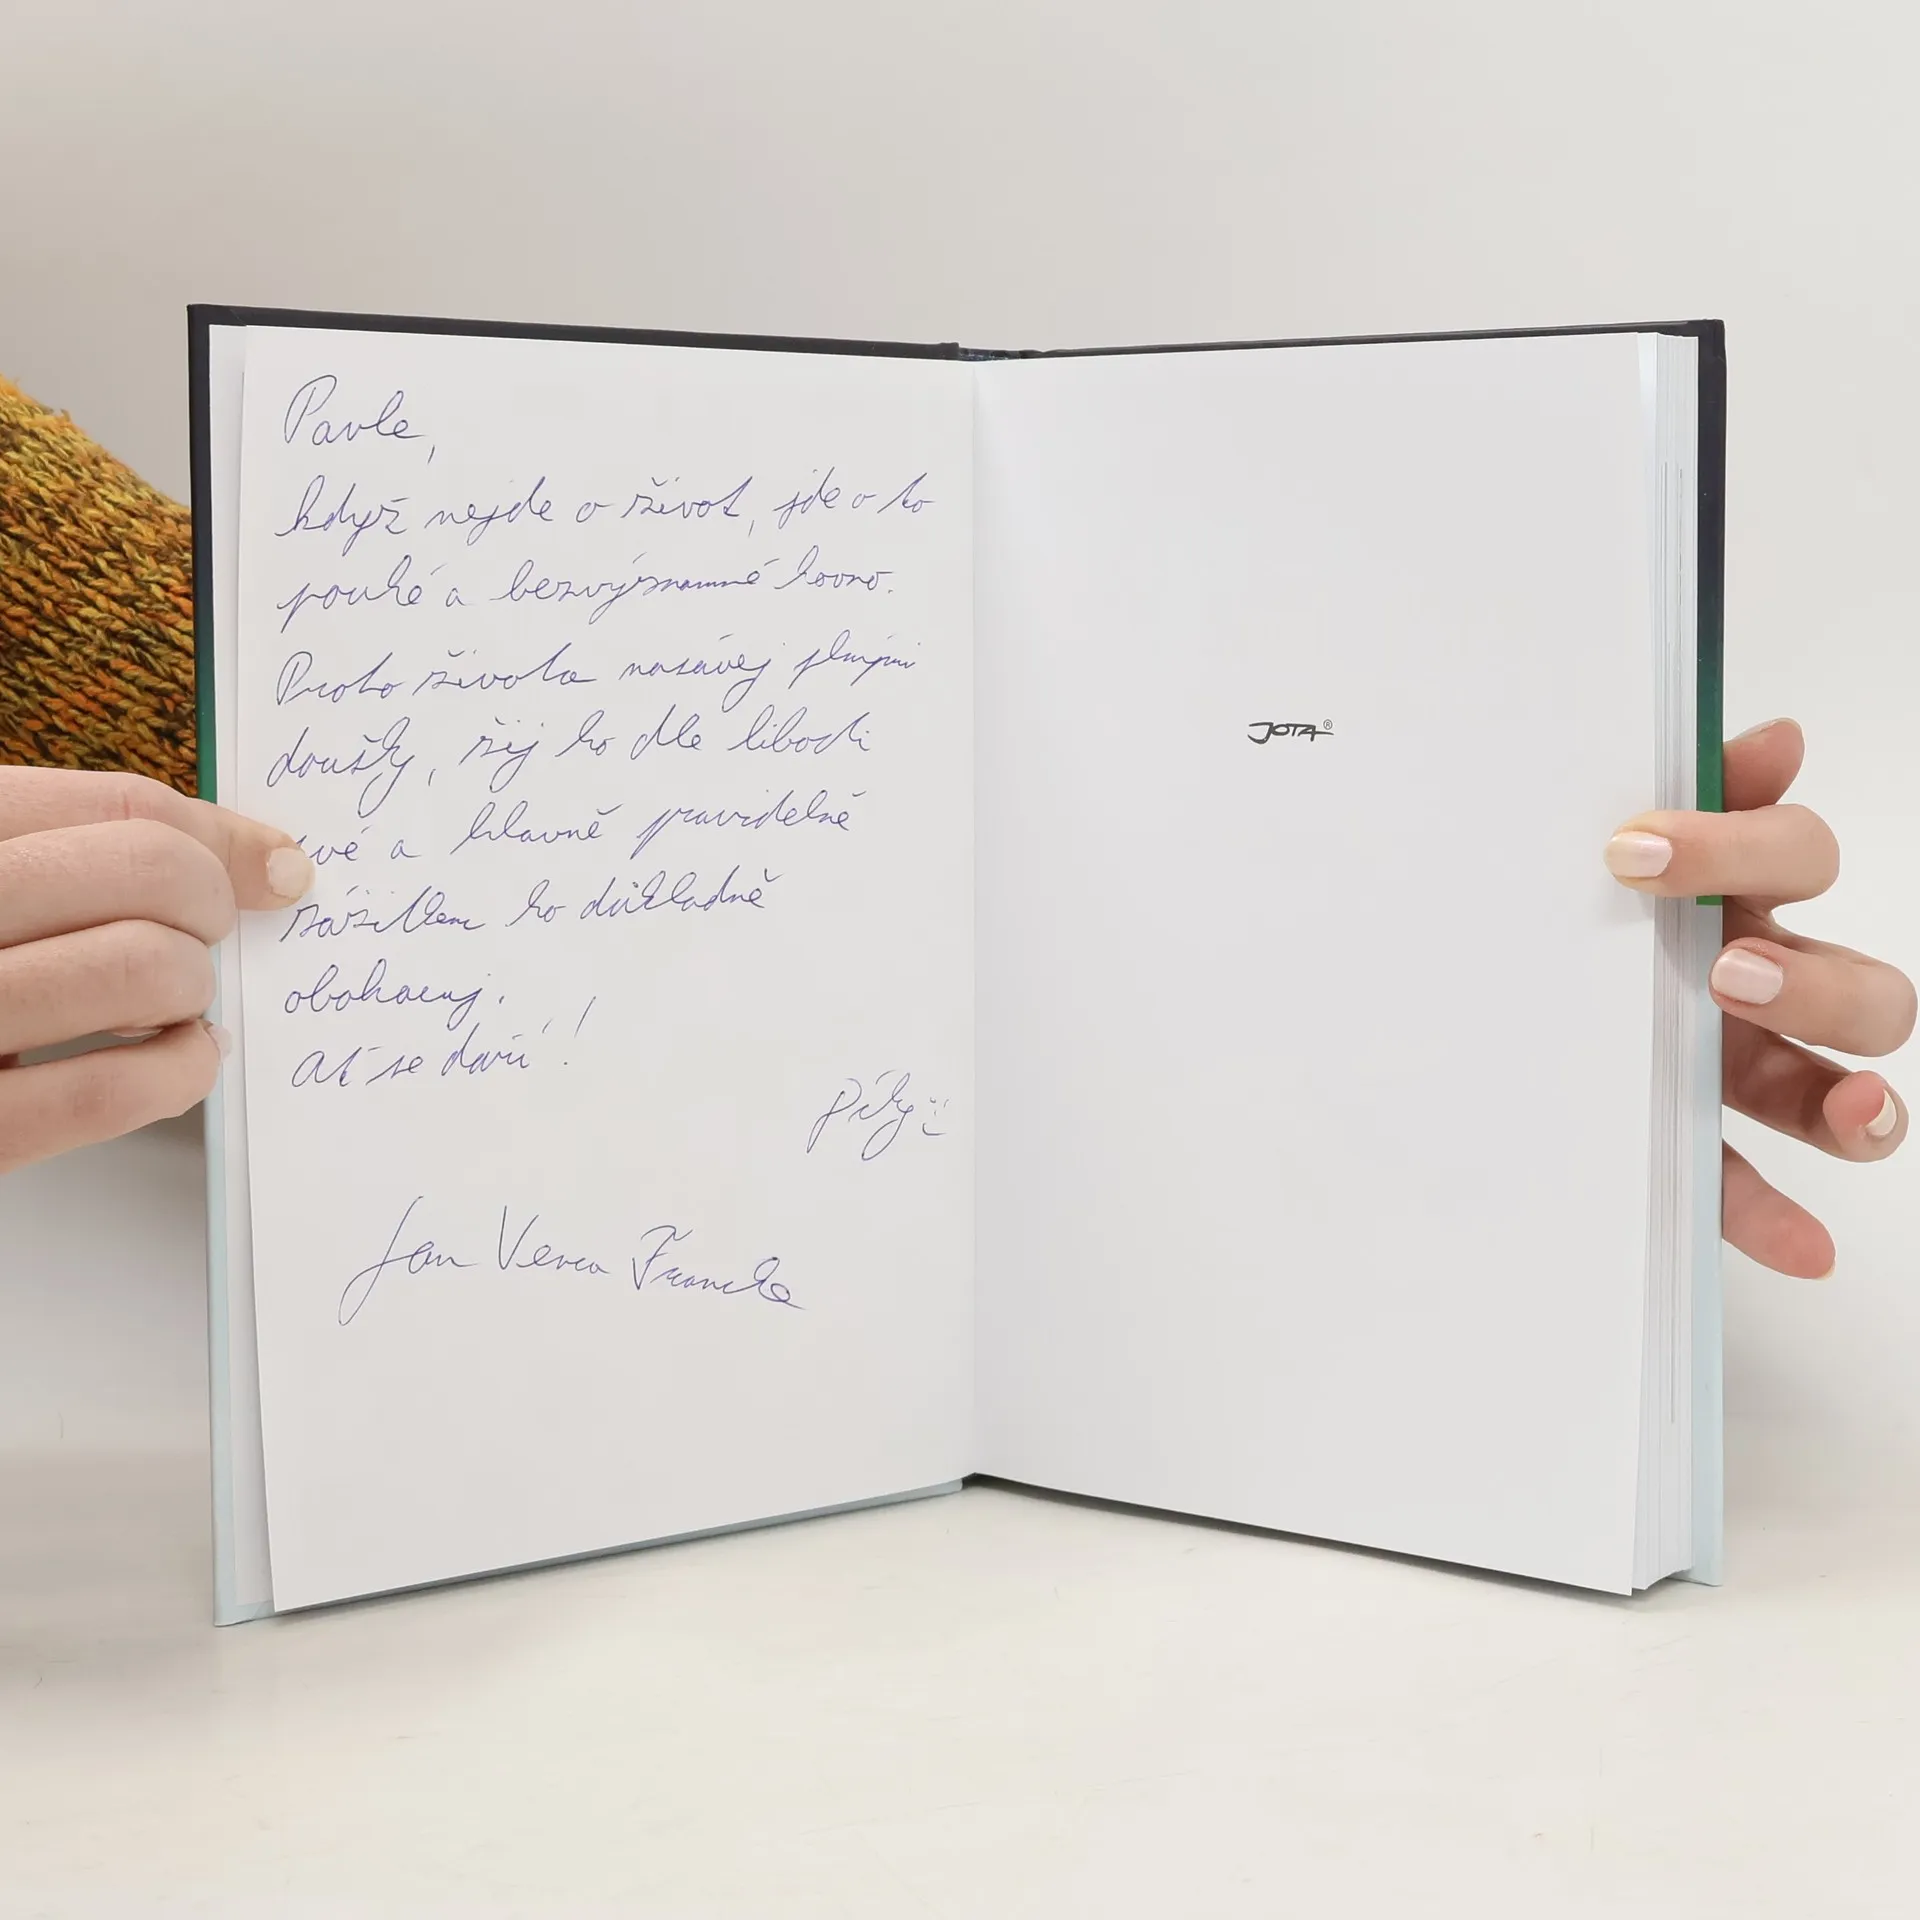 Pavle,
když nejde o život, jde o to
pouhé a bezvýznamné hovno.
Proto života nasávej plnými
doušky, žij ho dle libosti
své a hlavně pravidelně
zážitkem ho důkladně
obohacuj.
Ať se daří!
Díky
Jan Venca Francke
JOTA®